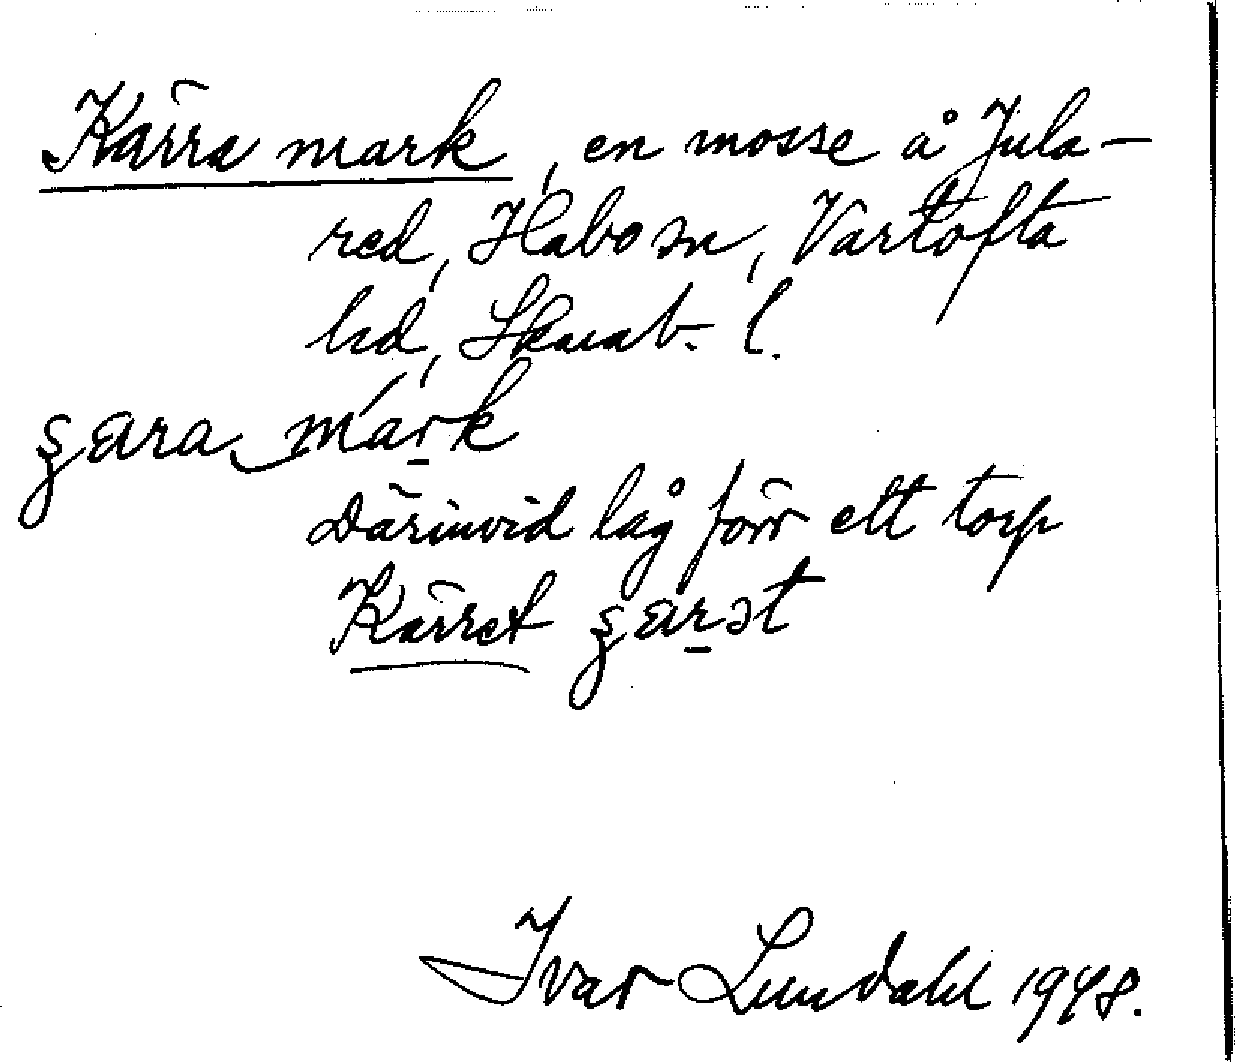 Kärra mark, en mosse å Jula-
red, Habo sn, Vartofta
hd, Skarab. l.
Därinvid låg förr ett torp
Kärret
Ivar Lundahl 1948.